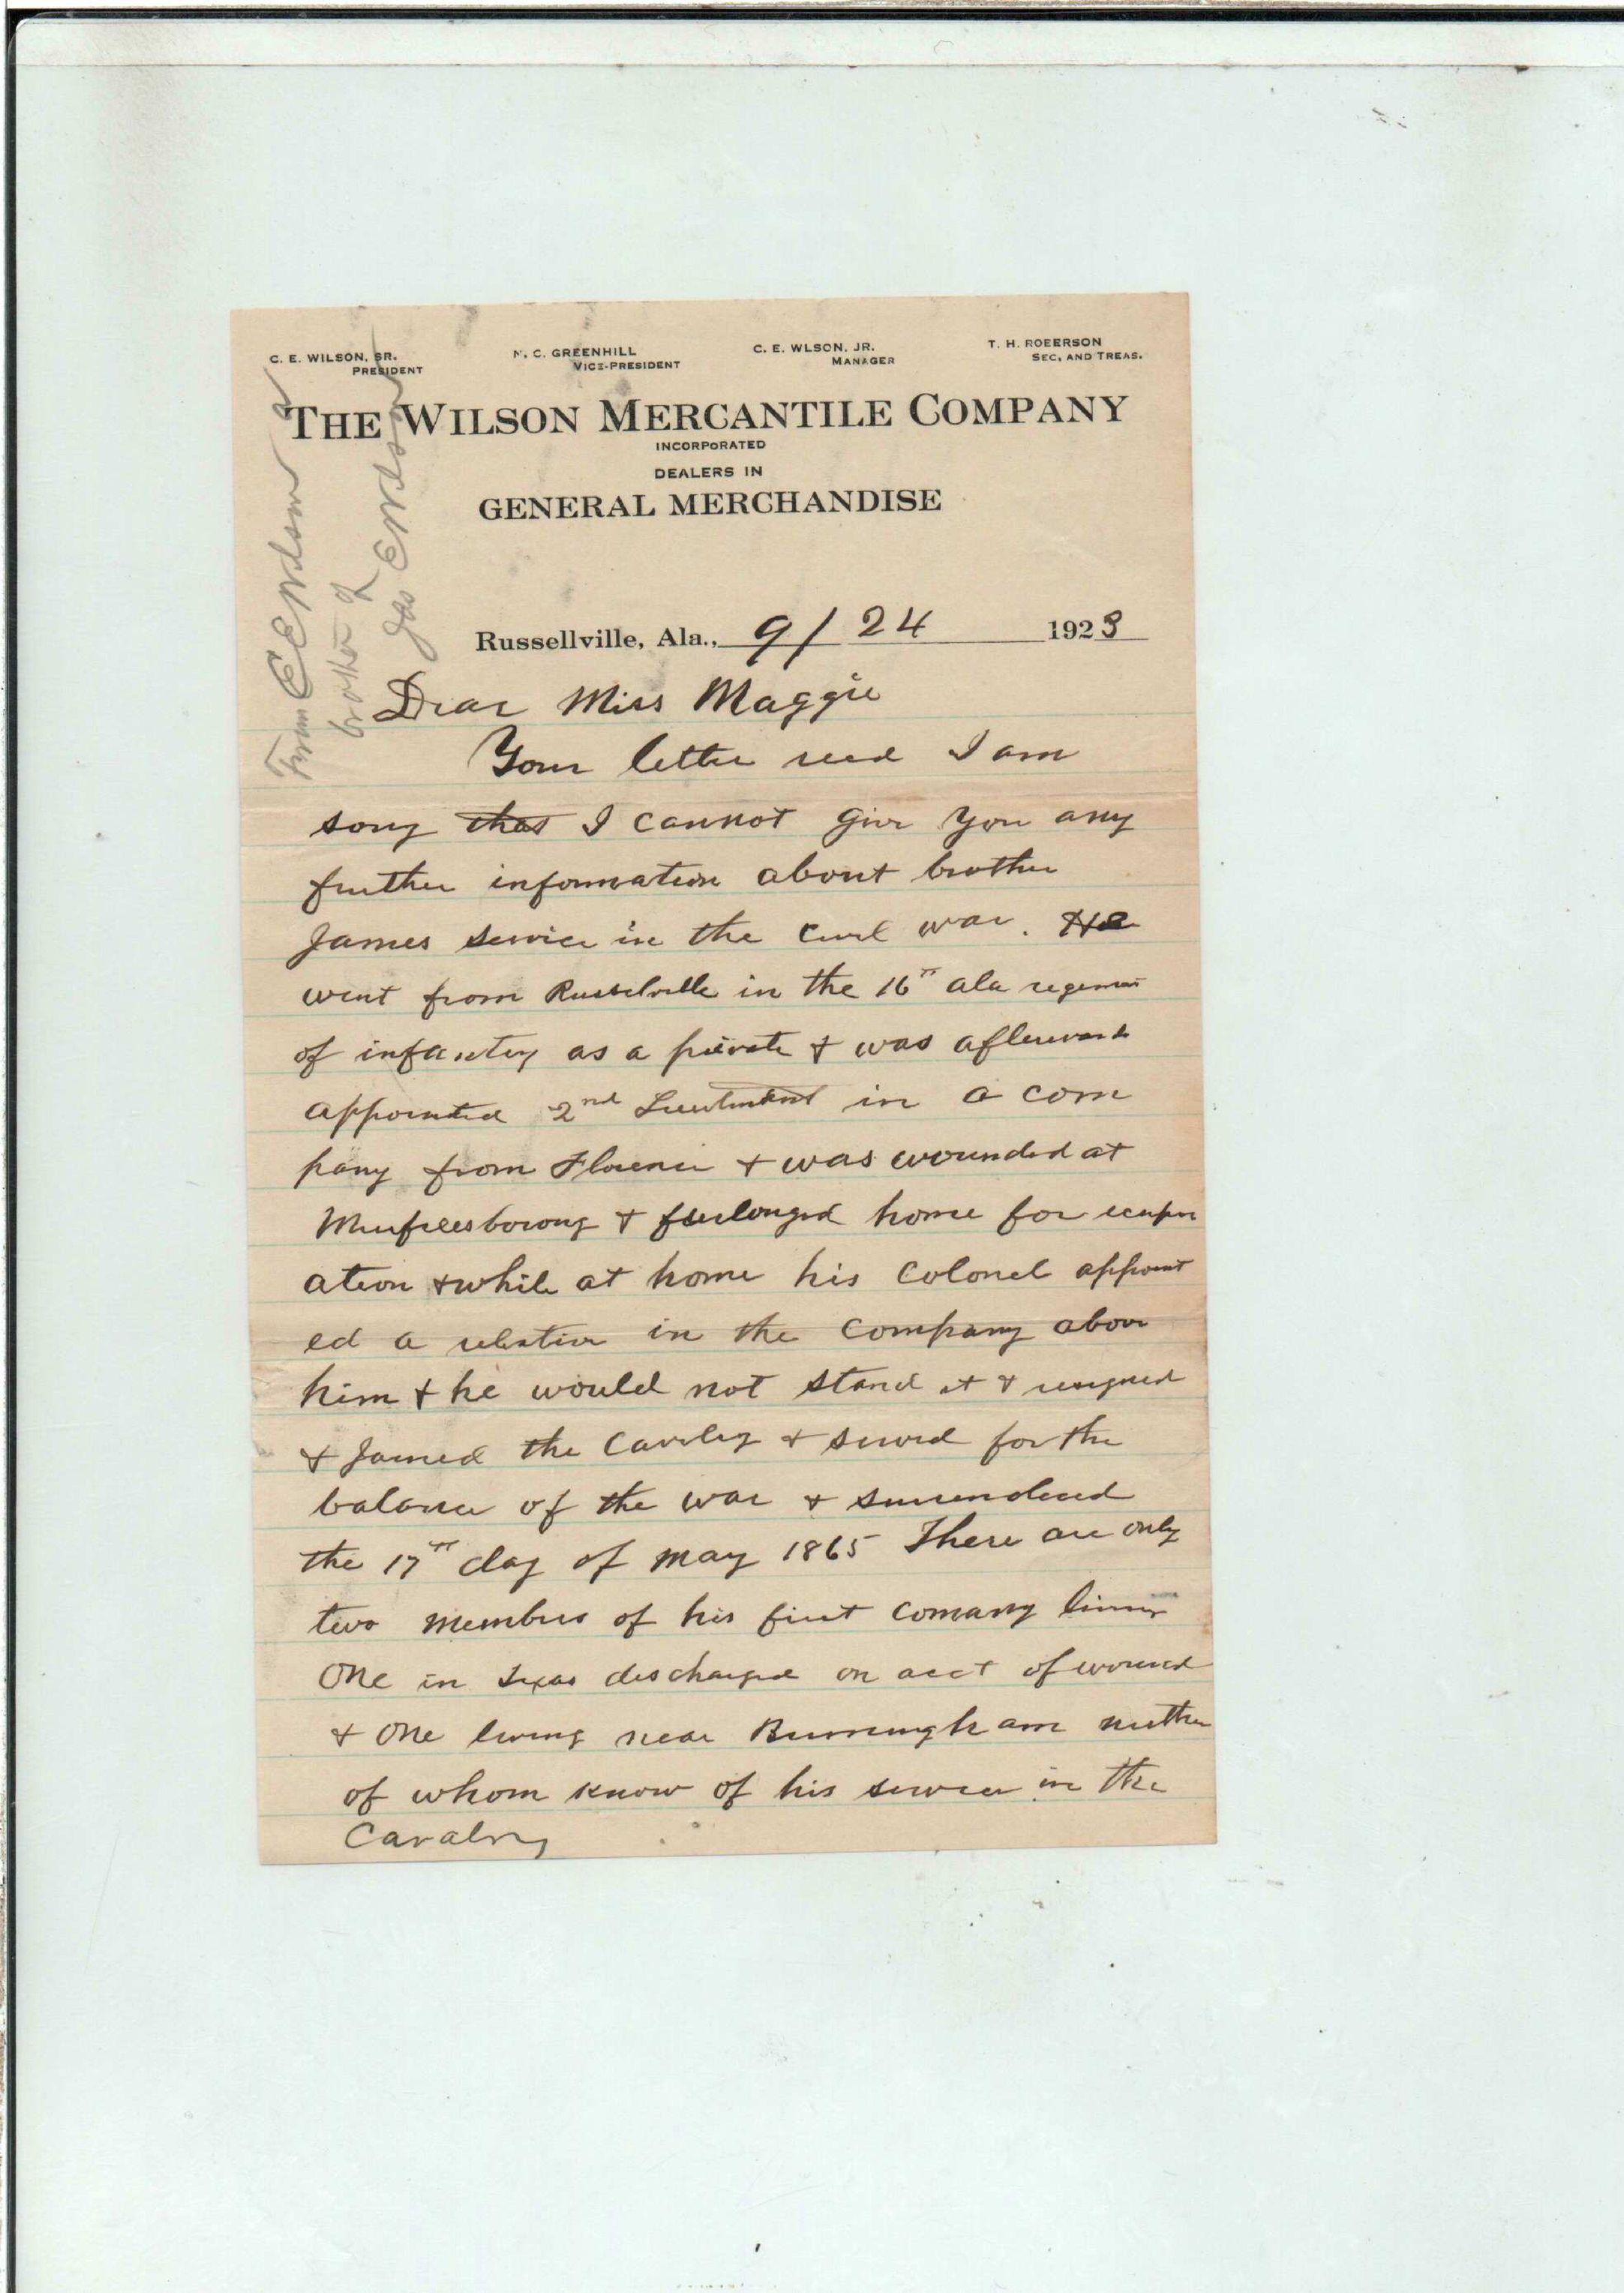 C. E. WILSON, SR.
PRESIDENT
N. C. GREENHILL
VICE-PRESIDENT
C. E. WLSON, JR.
MANAGER
T. H. ROBERSON
SEC. AND TREAS.
THE WILSON MERCANTILE COMPANY
INCORPORATED
DEALERS IN
GENERAL MERCHANDISE
From C E Wilson
brother of
Jas E Wilson
Russellville, Ala., 9/24 1923
Dear Miss Maggie
Your letter recd I am
sorry that I cannot give you any
further information about brother
James service in the Civil war. He
went from Russelville in the 16th ala regiment
of infantry as a private & was afterwards
appointed 2nd Lieutenant in a com
pany from Florence & was wounded at
Murfreesboroug & furlonged home for recuper
ation & while at home his Colonel appoint
ed a relative in the Company above
him & he would not stand it & resigned
& Joined the Cavalry & served for the
balance of the war & surrendered
the 17th day of may 1865 There are only
two members of his first comany living
One in Texas discharged on acct of wound
& One living near Birmingham neither
of whom know of his service in the
Cavalry